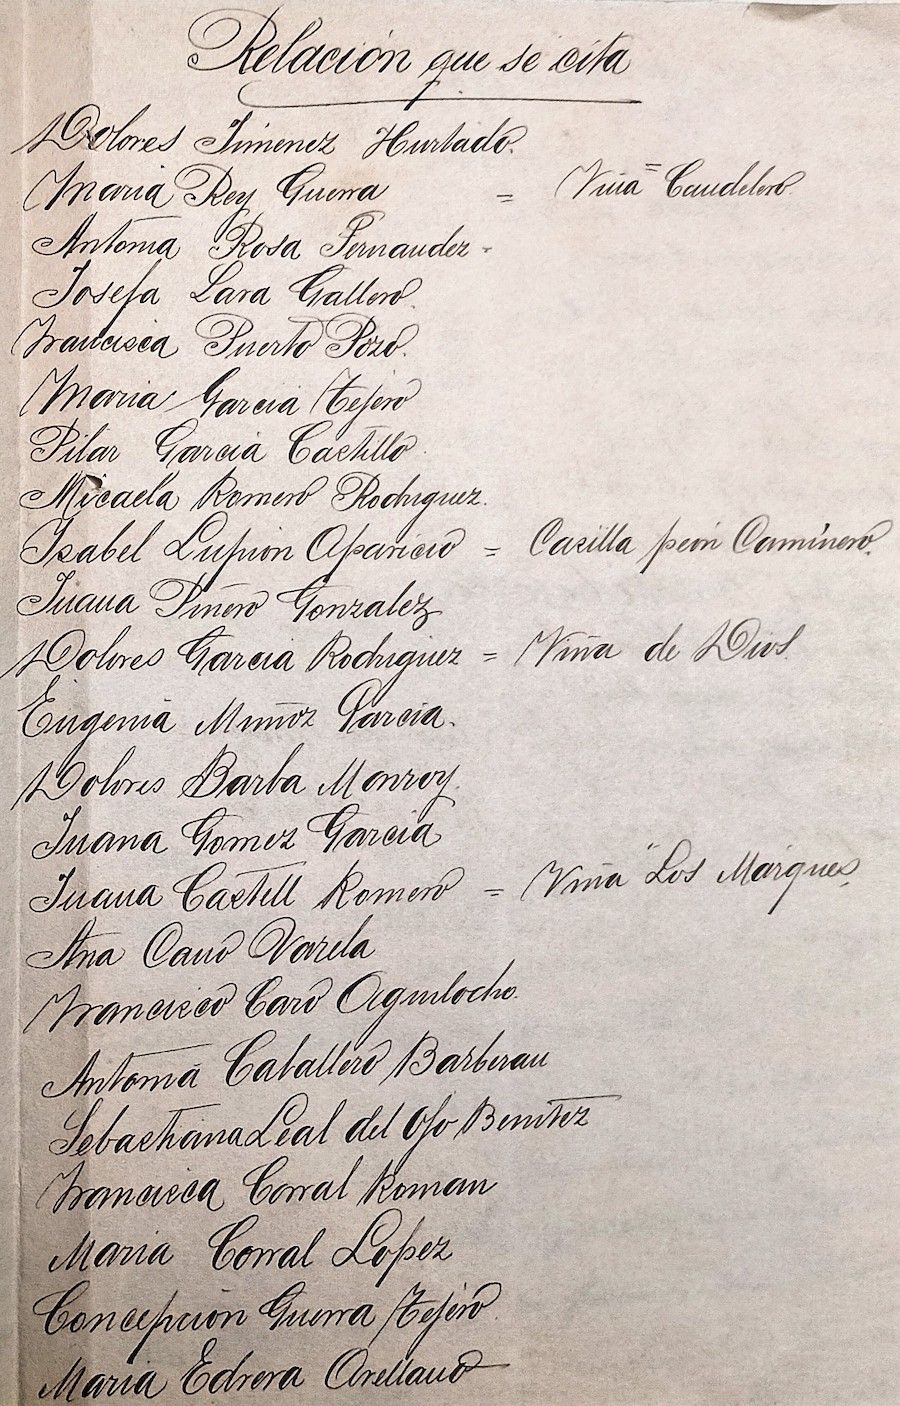 Relación que se cita
Dolores Jimenez Hurtado.
Maria Rey Guerra = Viña "Caudelero.
Antonia Rosa Fernandez -
Josefa Lara Gallero.
Francisca Puerto Pozo.
Maria Garcia Tejero
Pilar Garcia Castillo
Micaela Romero Rodriguez.
Isabel Lupion Aparicio = Casilla peón Caminero.
Juana Piñero Gonzalez
Dolores Garcia Rodriguez = Viña de Dios.
Eugenia Muñoz Garcia.
Dolores Barba Monroy.
Juana Gomez Garcia
Juana Castell Romero = Viña "Los Marques.
Ana Cano Varela
Francisco Caro Aguilocho.
Antonia Caballero Barberan
Sebastiana Leal del Ojo Benitez
Francisca Corral Roman
Maria Corral Lopez
Concepción Guerra Tejero.
Maria Edrera Orellano